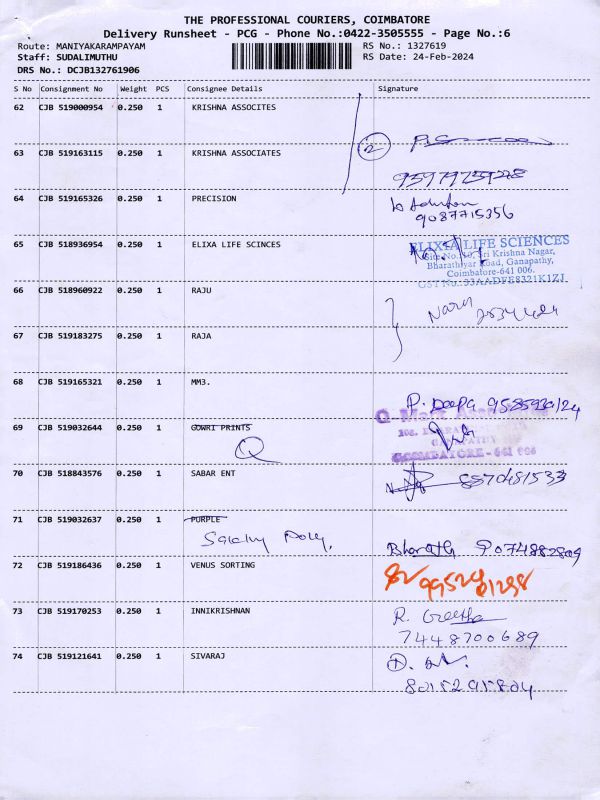 THE PROFESSIONAL COURIERS, COIMBATORE
Delivery Runsheet - PCG - Phone No.:0422-3505555 - Page No.:6
Route: MANIYAKARAMPAYAM RS No.: 1327619
Staff: SUDALIMUTHU RS Date: 24-Feb-2024
DRS No.: DCJB132761906
S No Consignment No Weight PCS Consignee Details Signature
62 CJB 519000954 0.250 1 KRISHNA ASSOCITES
2
63 CJB 519163115 0.250 1 KRISHNA ASSOCIATES
64 CJB 519165326 0.250 1 PRECISION
9087715356
65 CJB 518936954 0.250 1 ELIXA LIFE SCINCES
ELIXIA LIFE SCIENCES
Site No.10, Sri Krishna Nagar,
Bharathiyar Road, Ganapathy,
Coimbatore-641 006.
GST No.:33AADFE8321K1ZJ
66 CJB 518960922 0.250 1 RAJU
67 CJB 519183275 0.250 1 RAJA
68 CJB 519165321 0.250 1 MM3.
P. Deepa 9585930124
69 CJB 519032644 0.250 1 GOWRI PRINTS
Q
COIMBATORE - 641 006
70 CJB 518843576 0.250 1 SABAR ENT
8870481533
71 CJB 519032637 0.250 1 PURPLE
Bharath 9074882809
72 CJB 519186436 0.250 1 VENUS SORTING
73 CJB 519170253 0.250 1 INNIKRISHNAN
R. Geetha
7448700689
74 CJB 519121641 0.250 1 SIVARAJ
8015295804